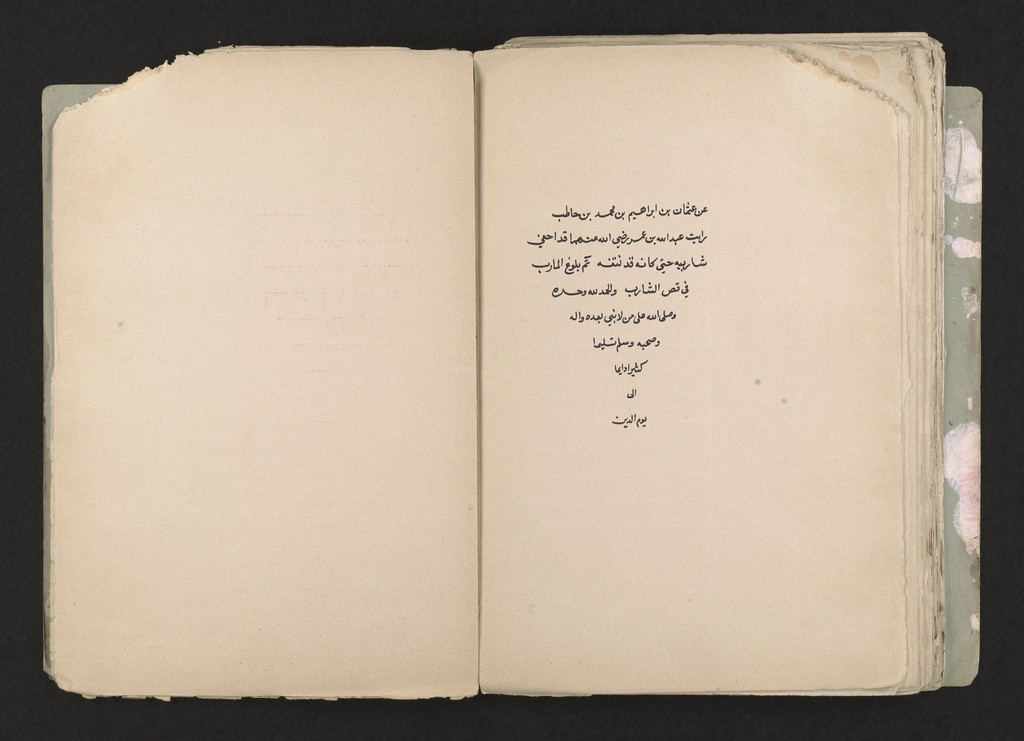 عن عثمان بن ابراهيم بن محمد بن حاطب
رايت عبد الله بن عمر رضي الله عنهما قد احفي
شاربيه حتى كانه قد نتفه تم بلوغ المارب
في قص الشارب والحمد لله وحده
وصلى الله على من لا نبي بعده واله
وصحبه وسلم تسليما
كثيرا دايما
الى
يوم الدين